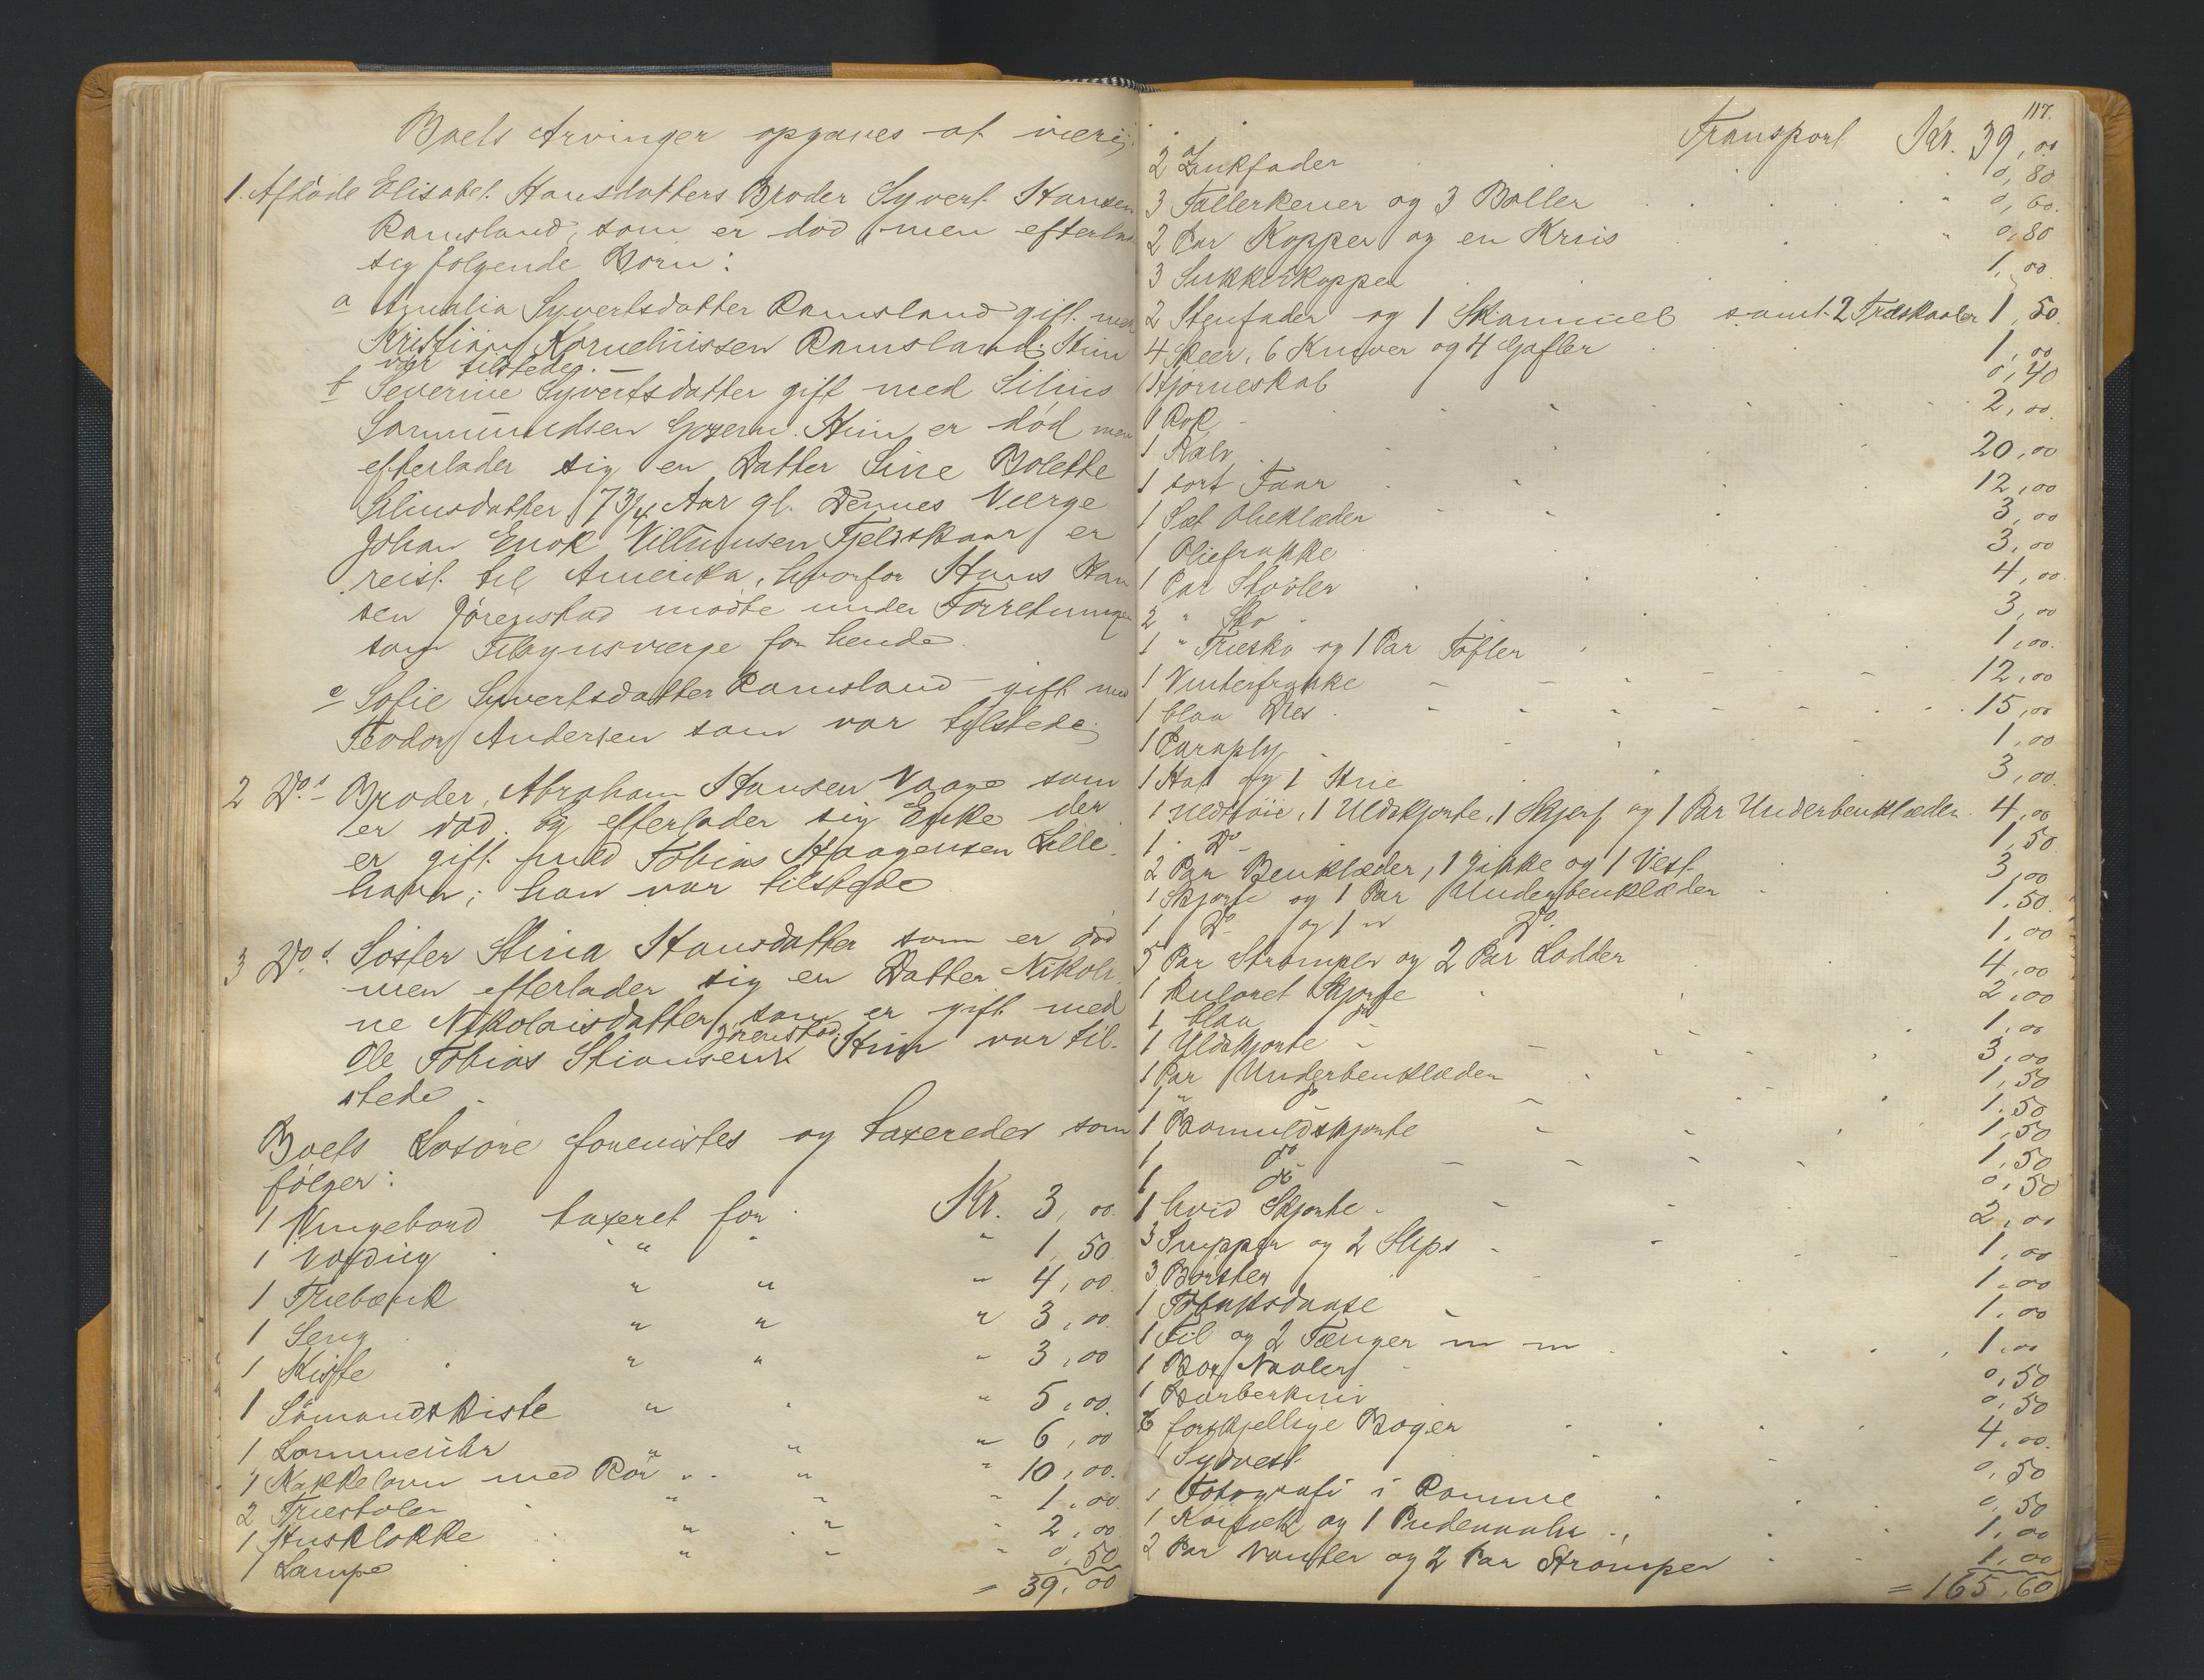 Boets Arvinger opgaves at være:
1. Afdøde Elisabet Hansdatters Broder Syvert Hansen
Ramsland, som er død, men efterlod
sig følgende Børn:
a Amalia Syvertsdatter Ramsland gift med
Kristian Korneliussen Ramsland. Hun
var tilstede. —
b Severine Syvertsdatter gift med Silius
Sørmundsen Hun er død men
efterlader sig en Datter Sine Bolette
Siliusdatter, 7 3/4 Aar gl. Dennes Værge
Johan Enok Villumsen Fjeldskaar er
reist til Amerika, hvorfor Hans Han
sen Jørenstad mødte under Forretningen
som Tilsynsværge for hende.
c Sofie Syvertsdatter Ramsland gift med
Teodor Andersen som var tilstede.
2 Do.s Broder, Abraham Hansen Vaage som
er død og efterlader sig Enke der
er gift med Tobias Haagensen Lille-
havn; han var tilstede
3 Do.s Søster Stina Hansdatter som er død
men efterlader sig en Datter Nikoli-
ne Nikolaisdatter, som er gift med
Jørenstad
Ole Tobias Stiansen Hun var til-
stede -
Boets Løsøre forevistes og taxeredes som
følger:
1 Vingebord taxeret for Kr. 3,00
1 " " " 1,50
1 Træbænk " " " 4,00
1 Seng " " " 3,00
1 Kiste " " " 3,00
1 Sømandskiste " " " 5,00
1 Lommeuhr " " " 6,00
1 Kakkelovn med Rør " " " 10,00
2 Træstoler " " " 1,00
1 Husklokke " " " 2,00
1 Lampe " " " 0,50
= 39,00
117.
Transport Kr. 39,00
2 Zinkfader 0,80
3 Tallerkener og 3 Boller " 0,60
2 Par Kopper og en Krus " 0,80
3 Sukkerkopper 1,00
2 Stenfader og 1 Skammel samt 2 Træskaaler 1,50
4 Skeer, 6 Knever og 4 Gafler 1,00
1 Hjørneskab 0,40
1 Rok 2,00
1 Kalv 20,00
1 sort Faar 12,00
1 Sæt Olieklæder 3,00
1 Oliefrakke 3,00
1 Par Støvler 4,00
2 " Sko 3,00
1 " Træsko og 1 Par Tøfler 1,00
1 Vinterfrakke 12,00
1 blaa 15,00
1 Paraply 1,00
1 Hat og 1 Hue 3,00
1 Uldtrøie, 1 Uldskjorte, 1 Skjerf og 1 Par Underbenklæder 4,00
1 Do 1,50
2 Par Benklæder, 1 Jakke og 1 Vest 3,00
1 Skjorte og 1 Par Underbenklæder 1,50
1 Do og 1 " Do. 1,00
5 Par Strømper og 2 Par Lodder 4,00
1 kuløret Skjorte 2,00
1 blaa do 1,00
1 Uldskjorte 3,00
1 Par Underbenklæder 1,50
1 " do 1,50
1 Bomuldskjorte 1,50
1 do 1,50
1 do 0,50
1 hvid Skjorte 2,00
3 Snipper og 2 Slips 1,00
3 Børster 1,00
1 Tobaksdaase 1,00
1 Fil og 2 Tænger m m 1,00
1 Box Naaler 0,50
1 Barberkniv 0,50
6 forskjellige Bøger 4,00
1 Sydvest 0,50
1 Fotografi i Ramme 0,50
1 Køisæk og 1 Pudevaahr 1,00
2 Par Vanter og 2 Par Strømper 1,00
= 165,60